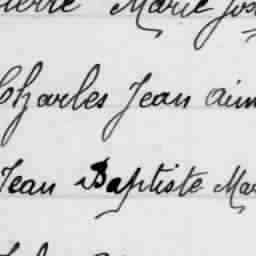 Pierre Marie Jos
Charles Jean aim
Jean Baptiste Mar